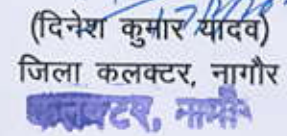 (दिनेश कुमार यादव)
जिला कलक्टर, नागौर
कलक्टर, नागौर